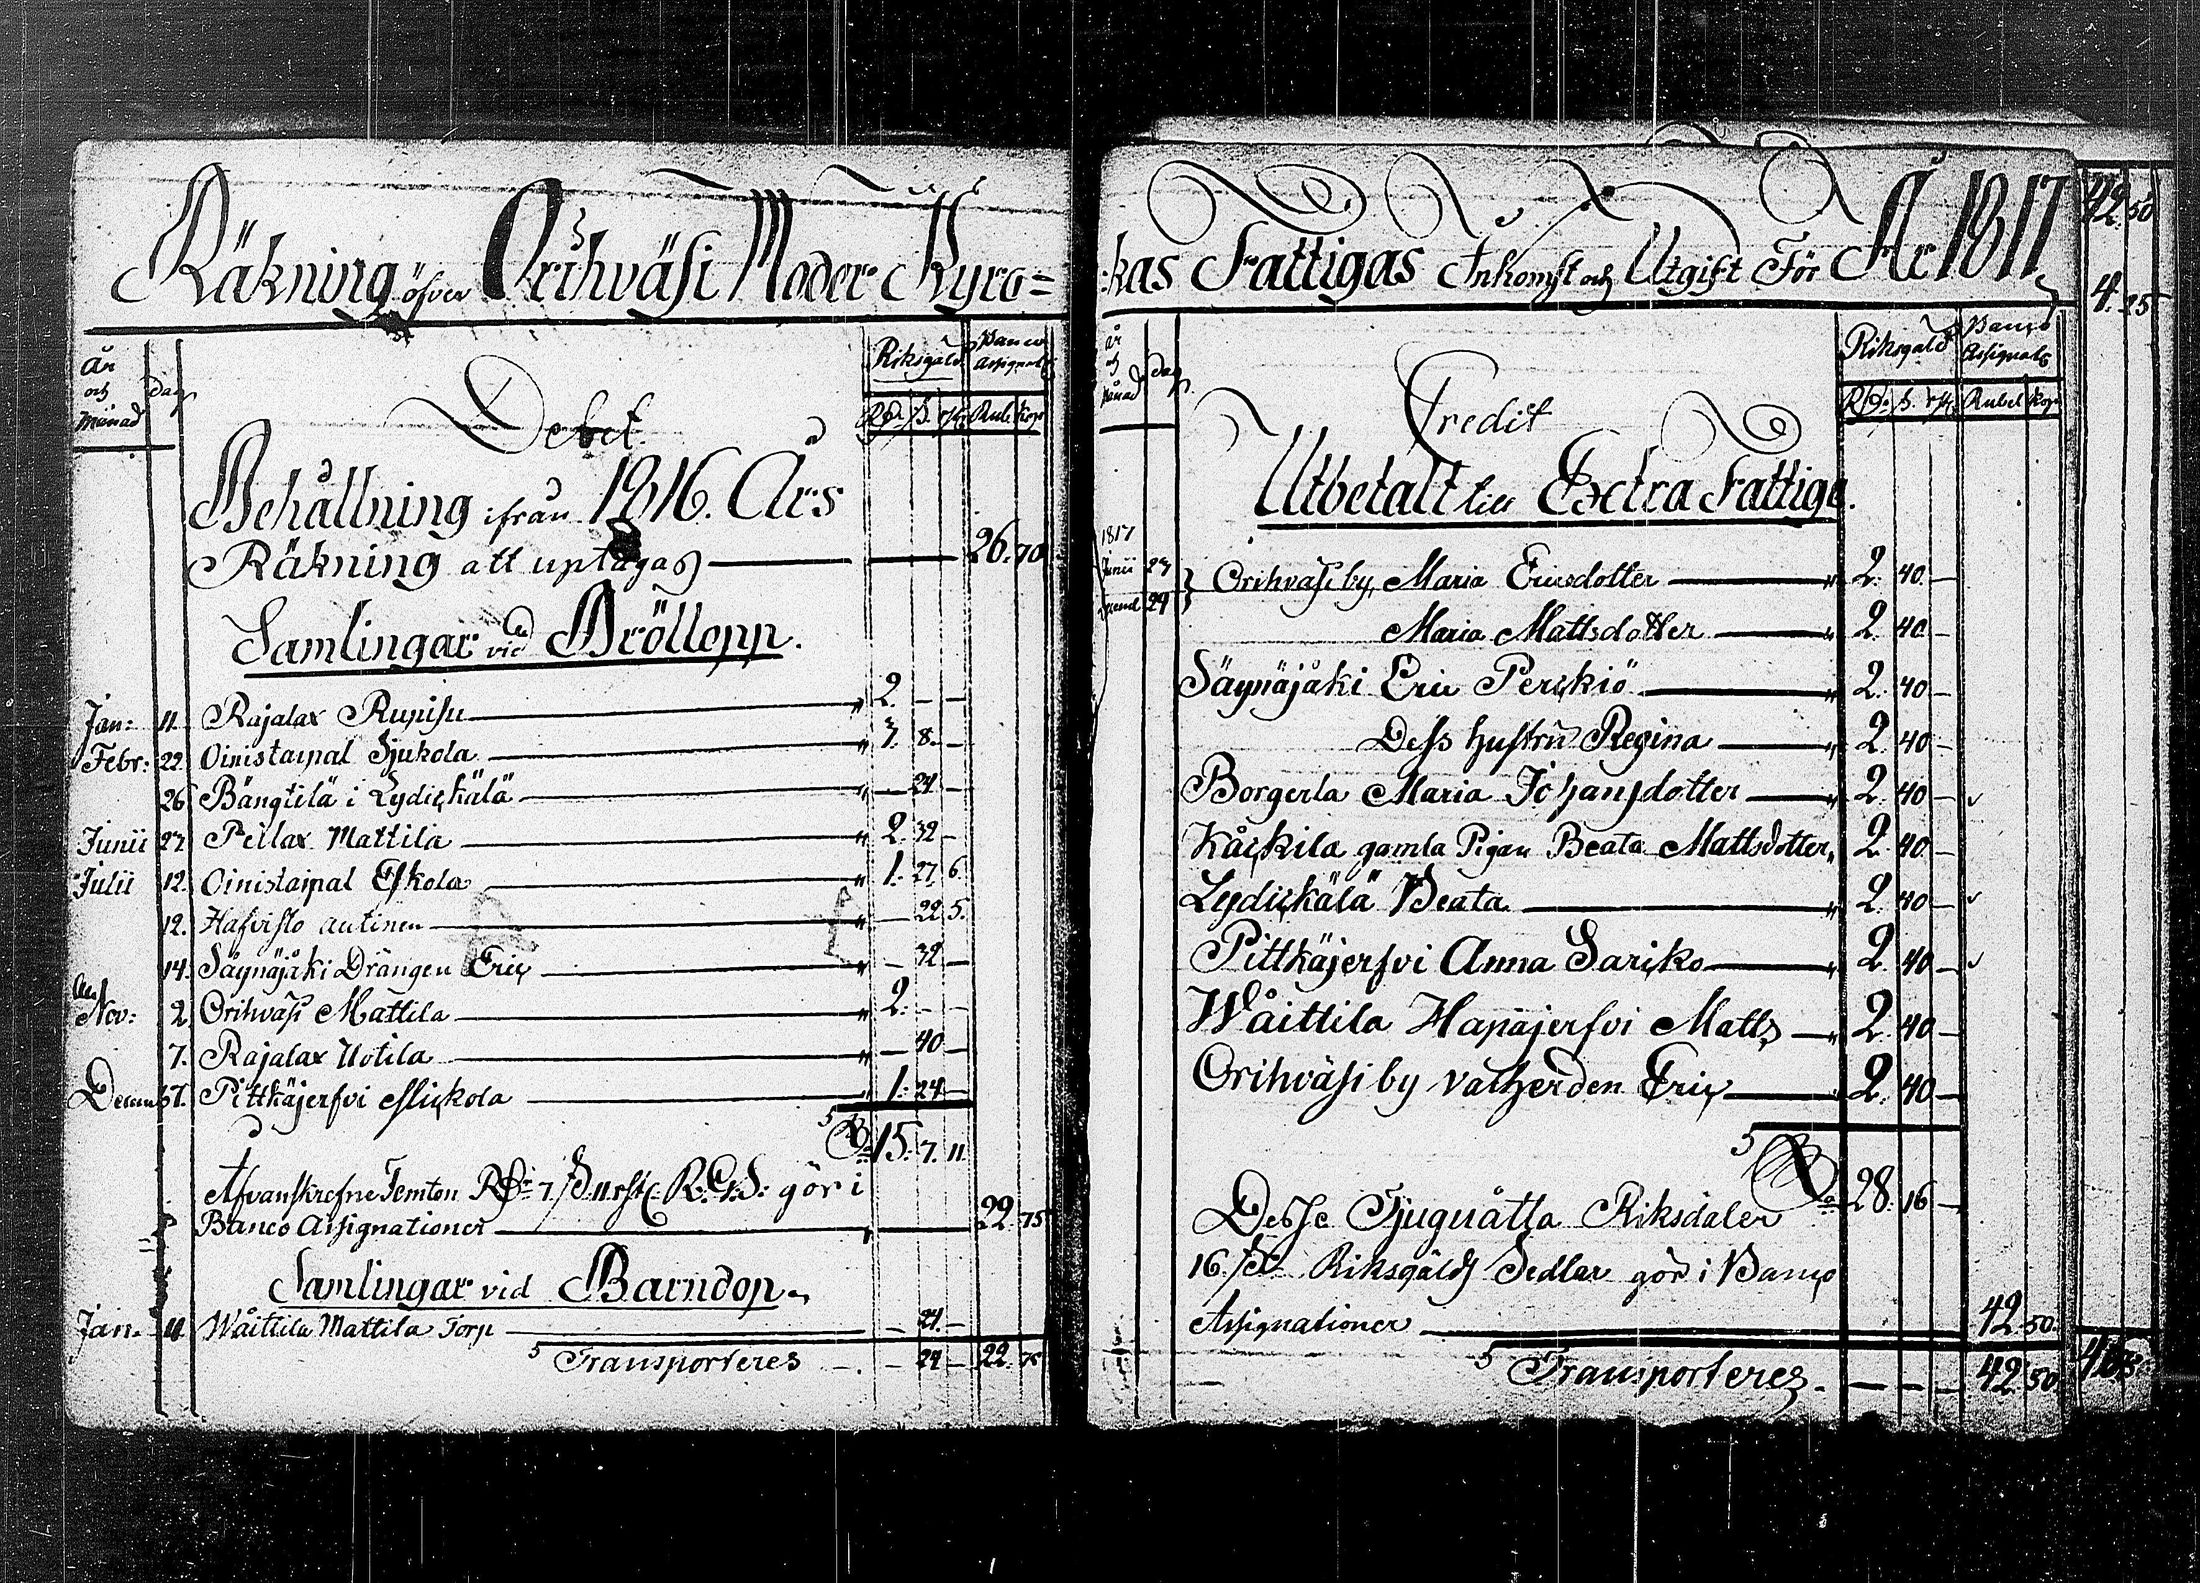 Räkning öfver Orihväsi Moder Kyro=
År och Månad dag Riksgäld Banco Assignat:
Rdr ß. rst. Rubl kop
Debet.
Behållning ifrån 1816. Års
Räkning att uptagas 26. 70
Samlingar vid Bröllopp.
Jan: 11. Rajalax Rupisu " 2. – –
Febr: 22. Oinistaipal Sjukola " 3. 8. –
26 Bängtilä i Lydickälä " – 24 –
Junii 27 Peilax Mattila " 2. 32 –
Julii 12. Oinistaipal Eskola " 1. 27. 6.
12. Hafvisto Antinen " – 22. 5.
14. Säynäjåki Drängen Eric " – 32 –
Nov: 2 Orihväsi Mattila " 2. – –
7. Rajalax Uotila " – 40 –
Decemb 7. Pittkäjerfvi Mickola " 1. 24 –
Sa 15. 7. 11.
Ofvanskrefne Femton Rdr 7 ß 11 rst. R. G. S: gör i
Banco Assignationer 22. 75
Samlingar vid Barndop.
Jan. 11 Wåittila Mattila Torp – 24. –
Transporteres – – 24 – 22. 75
:kas Fattigas Inkomst och Utgift För År 1817
år och månad dag. Riksgäld Banco Assignat:
Rdr: ß. rst. Rubel kop
Credit
Utbetalt till Extra Fattige.
1817
Junii 27 Orihväsi by, Maria Ericsdotter " 2. 40 –
29 Maria Mattsdotter " 2. 40 –
Säynäjåki Eric Perckiö " 2. 40 –
Dess hustru Regina " 2. 40 –
Borgerla Maria Johansdotter " 2. 40 –
Kåckila gamla Pigan Beata Mattsdotter, 2. 40 –
Lydickälä Beata " 2. 40 –
Pittkäjerfvi Anna Saricko " 2. 40 –
Wåittila Hapajerfvi Matts " 2. 40 –
Orihväsi by vatherden Eric 2. 40 –
Sa 28. 16 –
Desse Tjuguåtta Riksdaler
16. ß Riksgälds Sedlar gör i Banco
Assignationer 42. 50.
Transporteres. – – – 42. 50
42. 50
4. 25